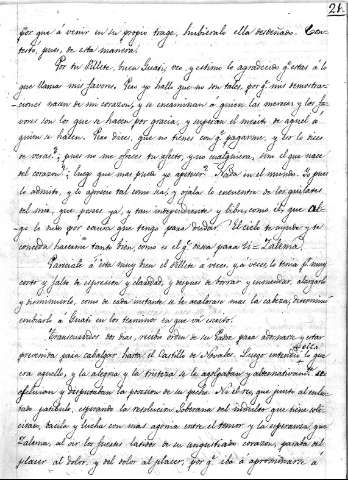 21.
por que á venir en su propio trage, hubieralo ella desdeñado. Con-
testó, pues, de esta manera.
Por tu billete, buen Guati, veo y estimo lo agradecido q.e estás á lo
que llamas mis favores. Pero yo hallo que no son tales, por q.e mis demostra-
ciones nacen de mi corazon, y se encaminan á quien las merece; y los fa-
vores son los que se hacen por gracia, y superan el merito de aquel á
quien se hacen. Pero dices, que no tienes con q.e pagarme, y eso lo dices
de veras? ¿pues no me ofreces tu afecto, y no cualquiera, sino el que nace
del corazon? ¿luego que mas puedo yo apetecer? Nada en el mundo. Yo pues
lo admito, y lo aprecio tal como es, y ojalá lo encuentre de los quilates
del mio, que posee ya, y tan independiente y libre, como el, que al-
go le dió por causa que tengo para dudar. El cielo te ayude y te
conceda hacerme tanto bien, como es el q.e desea para ti = Zalema.
Pareciale á esta muy bien el billete á veces, y á veces lo tenia p.r muy
corto y falto de espresion y claridad, y despues de borrar y enmendar, alargarlo
y disminuirlo, como de cada instante se le acaloraro mas la cabeza, determinó
embiarlo á Guati en los terminos en que vá escrito.
Transcurridos dos dias, recibió orden de su Padre para adornarse y estar
prevenida para cabalgar hasta el Castillo de Nivales. Luego entendió ella lo que
era aquello, y la alegria y la tristeza se le agolpaban y alternativam.te se
efectuan y disputaban la posesion de su pecho. No el reo, que puesto al inde-
bido patibulo, esperando la resolucion Soberana del indulto que tiene soli-
citado, bacila y lucha con mas agonia entre el temor y la esperanza, que
Zalema, al oir los fuertes latidos de su angustiado corazon, pasaba del
placer al dolor, y del dolor al placer, por q.e iba á aproximarse á